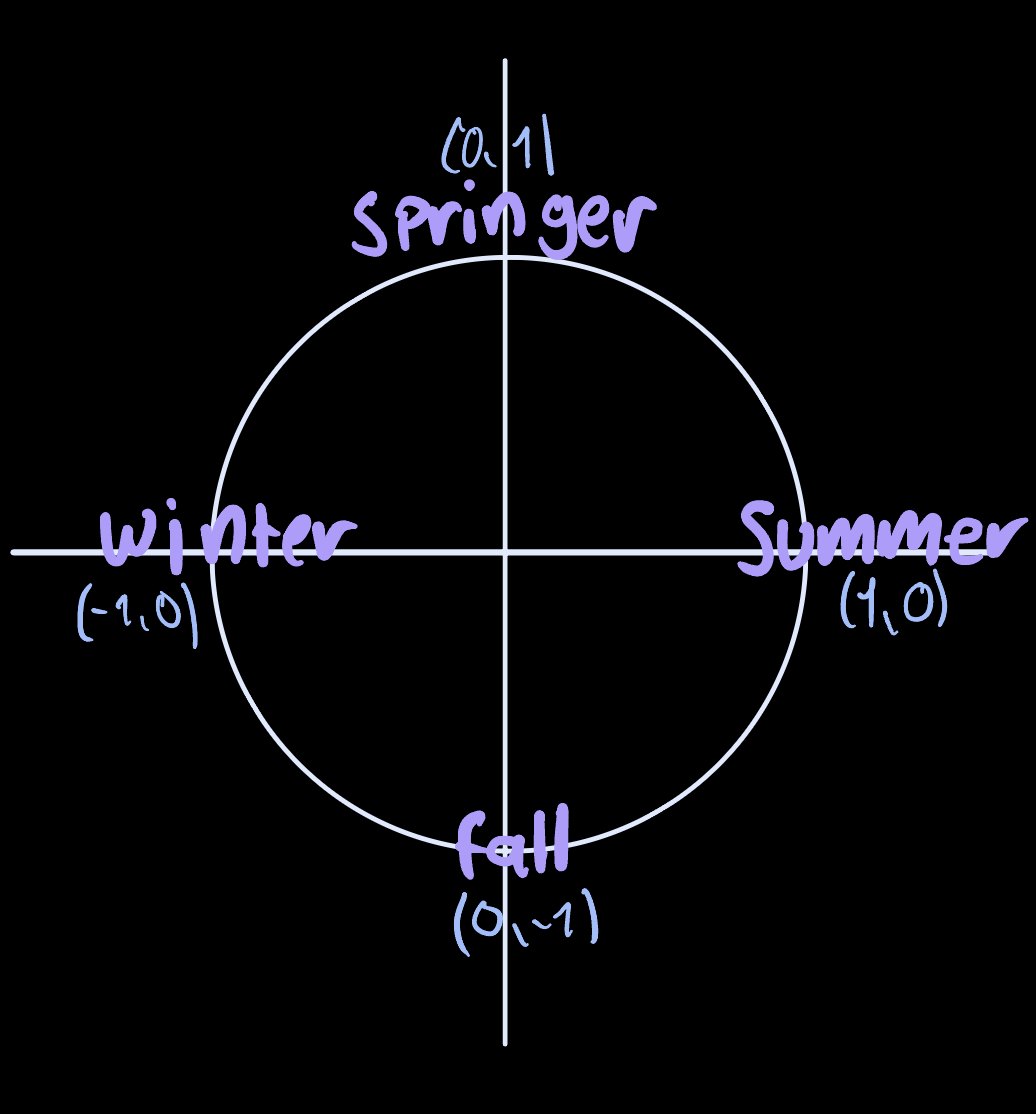 (0,1)
springer
winter
summer
(-1,0)
(1,0)
fall
(0,-1)